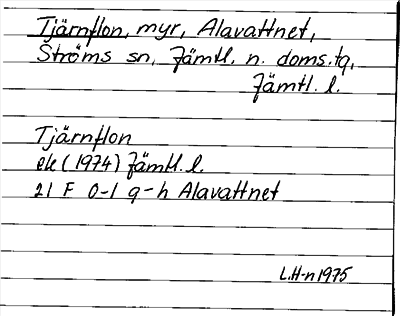 Tjärnflon, myr, Alavattnet,
Ströms sn, Jämtl. n. doms.tg,
Jämtl. l.
Tjärnflon
ek (1974) Jämtl. l.
21 F 0-1 g-h Alavattnet
L.H-n 1975